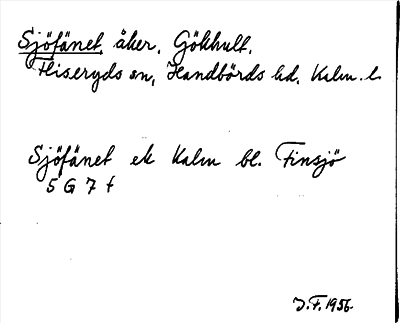 Sjöfänet, åker, Gökhult,
Fliseryds sn, Handbörds hd, Kalm. l.
Sjöfänet ek Kalm bl. Finsjö
5 G 7 f
J.F. 1956